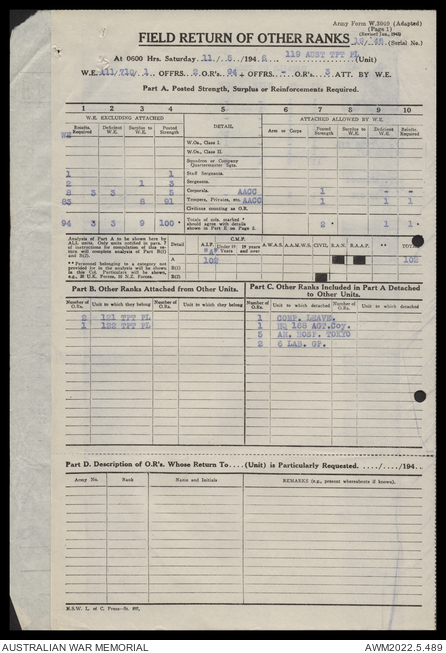 Army Form W.3009 (Adapted)
(Page 1)
(Revised Jan., 1943)
FIELD RETURN OF OTHER RANKS 19/45 (Serial No.)
At 0600 Hrs. Saturday 11/5/1946 119 AUST TPT PL (Unit)
W.E. 111/710/1 OFFRS. 2 O.R's. 94 + OFFRS. - O.R's. 3 ATT. BY W.E.
Part A. Posted Strength, Surplus or Reinforcements Required.
1 2 3 4 5 6 7 8 9 10
W.E. EXCLUDING ATTACHED DETAIL ATTACHED ALLOWED BY W.E.
Reinfts. Required Deficient W.E. Surplus to W.E. Posted Strength Arm or Corps Posted Strength Surplus to W.E. Deficient W.E. Reinfts. Required
W.Os., Class I.
W.Os., Class II.
Squadron or Company Quartermaster Sgts.
1 1 Staff Sergeants.
2 1 3 Sergeants.
8 3 5 Corporals. AACC 1 - -
83 8 91 Troopers, Privates, etc. AACC 1 1 1
Civilians counting as O.R.
94 3 9 100 * Totals of cols. marked * should agree with details shown in Part E on Page 2. 2 * 1 1 *
Analysis of Part A to be shown here by ALL units. Only units notified in para. 7 of instructions for compilation of this return will complete analysis of Part B(1) and B(2).
** Personnel belonging to a category not provided for in the analysis will be shown in this Col. Particulars will be shown, e.g., 20 U.K. Forces, 10 N.Z. Forces.
Detail A.I.F. C.M.F. Under 19 Years 19 years and over A.W.A.S. A.A.M.W.S. CIVIL R.A.N. R.A.A.F. ** TOTAL
A 102 102
B(1)
B(2)
Part B. Other Ranks Attached from Other Units.
Number of O.Rs. Unit to which they belong Number of O.Rs. Unit to which they belong
2 121 TPT PL
1 122 TPT PL
Part C. Other Ranks Included in Part A Detached to Other Units.
Number of O.Rs. Unit to which detached Number of O.Rs. Unit to which detached
1 COMP. LEAVE.
1 HQ 168 AGT.Coy.
5 AM. HOSP. TOKYO
2 6 LAB. GP.
Part D. Description of O.R's. Whose Return To....(Unit) is Particularly Requested...../...../194...
Army No. Rank Name and Initials REMARKS (e.g., present whereabouts if known).
N.S.W. L. of C. Press—St.
AUSTRALIAN WAR MEMORIAL AWM2022.5.489